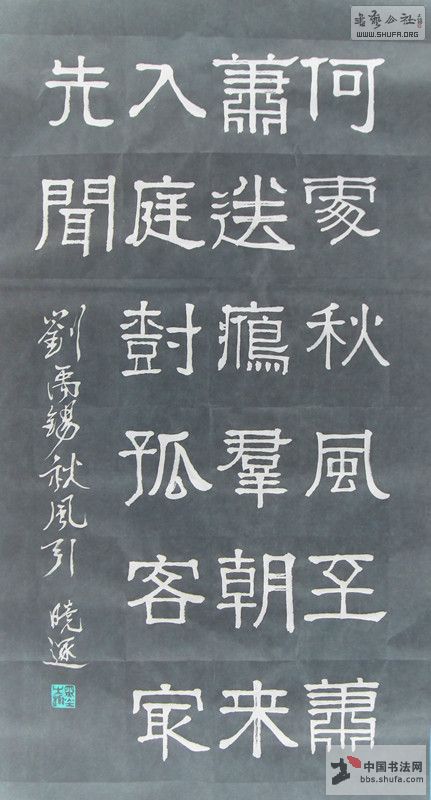 何處秋風至蕭
蕭送鴈羣朝來
入庭樹孤客冣
先聞
劉禹錫秋風引 曉
WWW.SHUFA.ORG
中国书法网
bbs.shufa.com